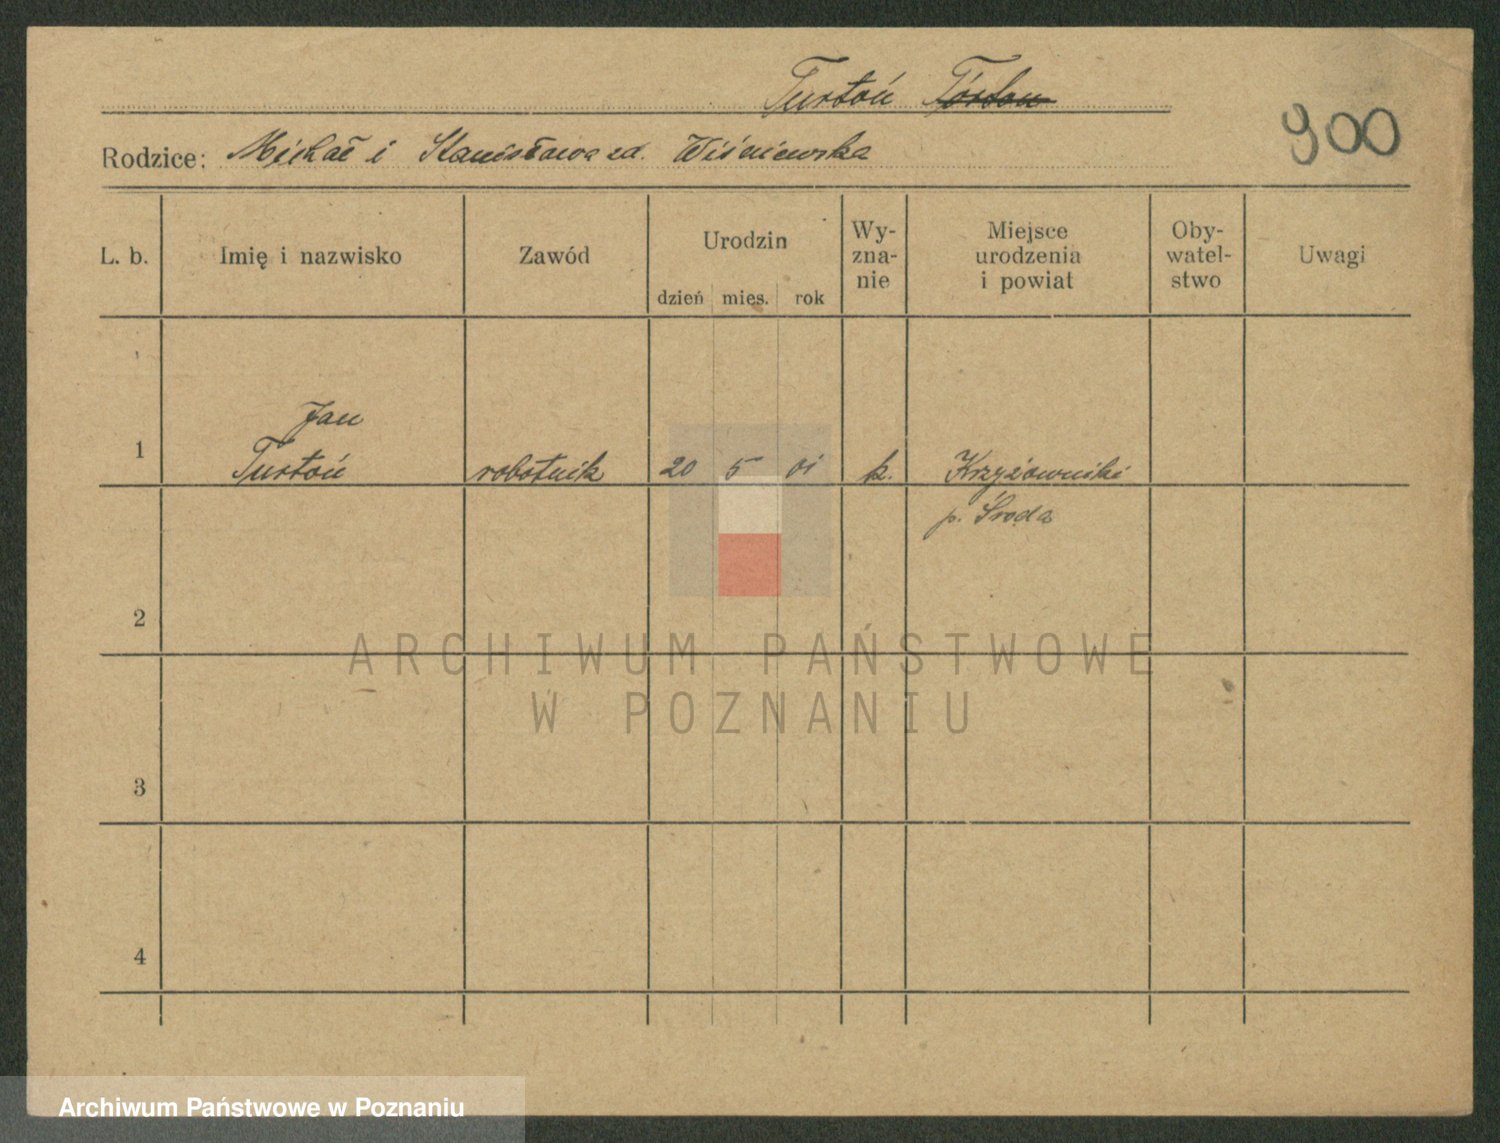 Turtoń Tórton
900
Rodzice: Michał i Stanisława zd. Wiśniewska
L. b. Imię i nazwisko Zawód Urodzin dzień mies. rok Wy-zna-nie Miejsce urodzenia i powiat Oby-watel-stwo Uwagi
Jan
1 Turtoń robotnik 20 5 01 k. Krzyżowniki
p. Środa
2
ARCHIWUM PAŃSTWOWE
W POZNANIU
3
4
Archiwum Państwowe w Poznaniu